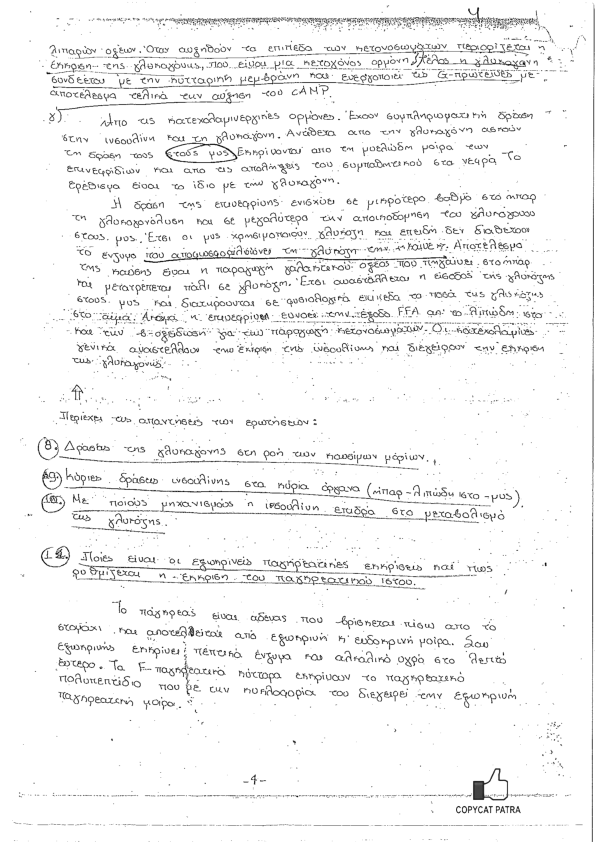 4
λιπαρών οξέων. Όταν αυξηθούν τα επίπεδα των κετονοσωμάτων περιορίζεται η
έκκριση της γλυκαγόνης, που είναι μια κετογόνος ορμόνη. Τέλος η γλυκαγόνη
συνδέεται με την κυτταρική μεμβράνη και ενεργοποιεί τις G-πρωτεΐνες με
αποτέλεσμα τελικά την αύξηση του cAMP.
γ) Από τις κατεχολαμινεργικές ορμόνες. Έχουν συμπληρωματική δράση
στην ινσουλίνη και τη γλυκαγόνη. Ανάθετα από την γλυκαγόνη ασκούν
τη δράση τους στους μυς. Εκκρίνονται από τη μυελώδη μοίρα των
επινεφριδίων και από τις απολήξεις του συμπαθητικού στα νεύρα. Το
ερέθισμα είναι το ίδιο με την γλυκαγόνη.
Η δράση της επινεφρίνης ενισχύει σε μικρότερο βαθμό στο ήπαρ
τη γλυκογονόλυση και σε μεγαλύτερο την αποικοδόμηση του γλυκογόνου
στους μυς. Έτσι οι μυς χρησιμοποιούν γλυκόζη και επειδή δεν διαθέτουν
το ένζυμο που αποφωσφορυλιώνει τη γλυκόζη την καίνε. Αποτέλεσμα
της καύσης είναι η παραγωγή γαλακτικού οξέος που πηγαίνει στο ήπαρ
και μετατρέπεται πάλι σε γλυκόζη. Έτσι αναστέλλεται η είσοδος της γλυκόζης
στους μυς και διατηρούνται σε φυσιολογικά επίπεδα τα ποσά της γλυκόζης
στο αίμα. Ακόμα η επινεφρίνη ευνοεί την έξοδο FFA απ' το λιπώδη ιστό
και την β-οξείδωση για την παραγωγή κετονοσωμάτων. Οι κατεχολαμίνες
γενικά αναστέλλουν την έκκριση της ινσουλίνης και διεγείρουν την έκκριση
της γλυκαγόνης.
Περιέχει τις απαντήσεις των ερωτήσεων:
8. Δράσεις της γλυκαγόνης στη ροή των καυσίμων μορίων.
9. Κύριες δράσεις ινσουλίνης στα κύρια όργανα (ήπαρ-λιπώδη ιστο-μυς)
10. Με ποιούς μηχανισμούς η ινσουλίνη επιδρά στο μεταβολισμό
της γλυκόζης.
Ποιές είναι οι εξωκρινείς παγκρεατικές εκκρίσεις και πως
ρυθμίζεται η έκκριση του παγκρεατικού ιστού.
Το πάγκρεας είναι αδένας που βρίσκεται πίσω απο το
στομάχι και αποτελείται από εξωκρινή κ' ενδοκρινή μοίρα. Σαν
εξωκρινής εκκρίνει πεπτικά ένζυμα και αλκαλικό υγρό στο λεπτό
έντερο. Τα F-παγκρεατικά κύτταρα εκκρίνουν το παγκρεατικό
πολυπεπτίδιο που με την κυκλοφορία του διεγείρει την εξωκρινή
παγκρεατική μοίρα.
-4-
COPYCAT PATRA